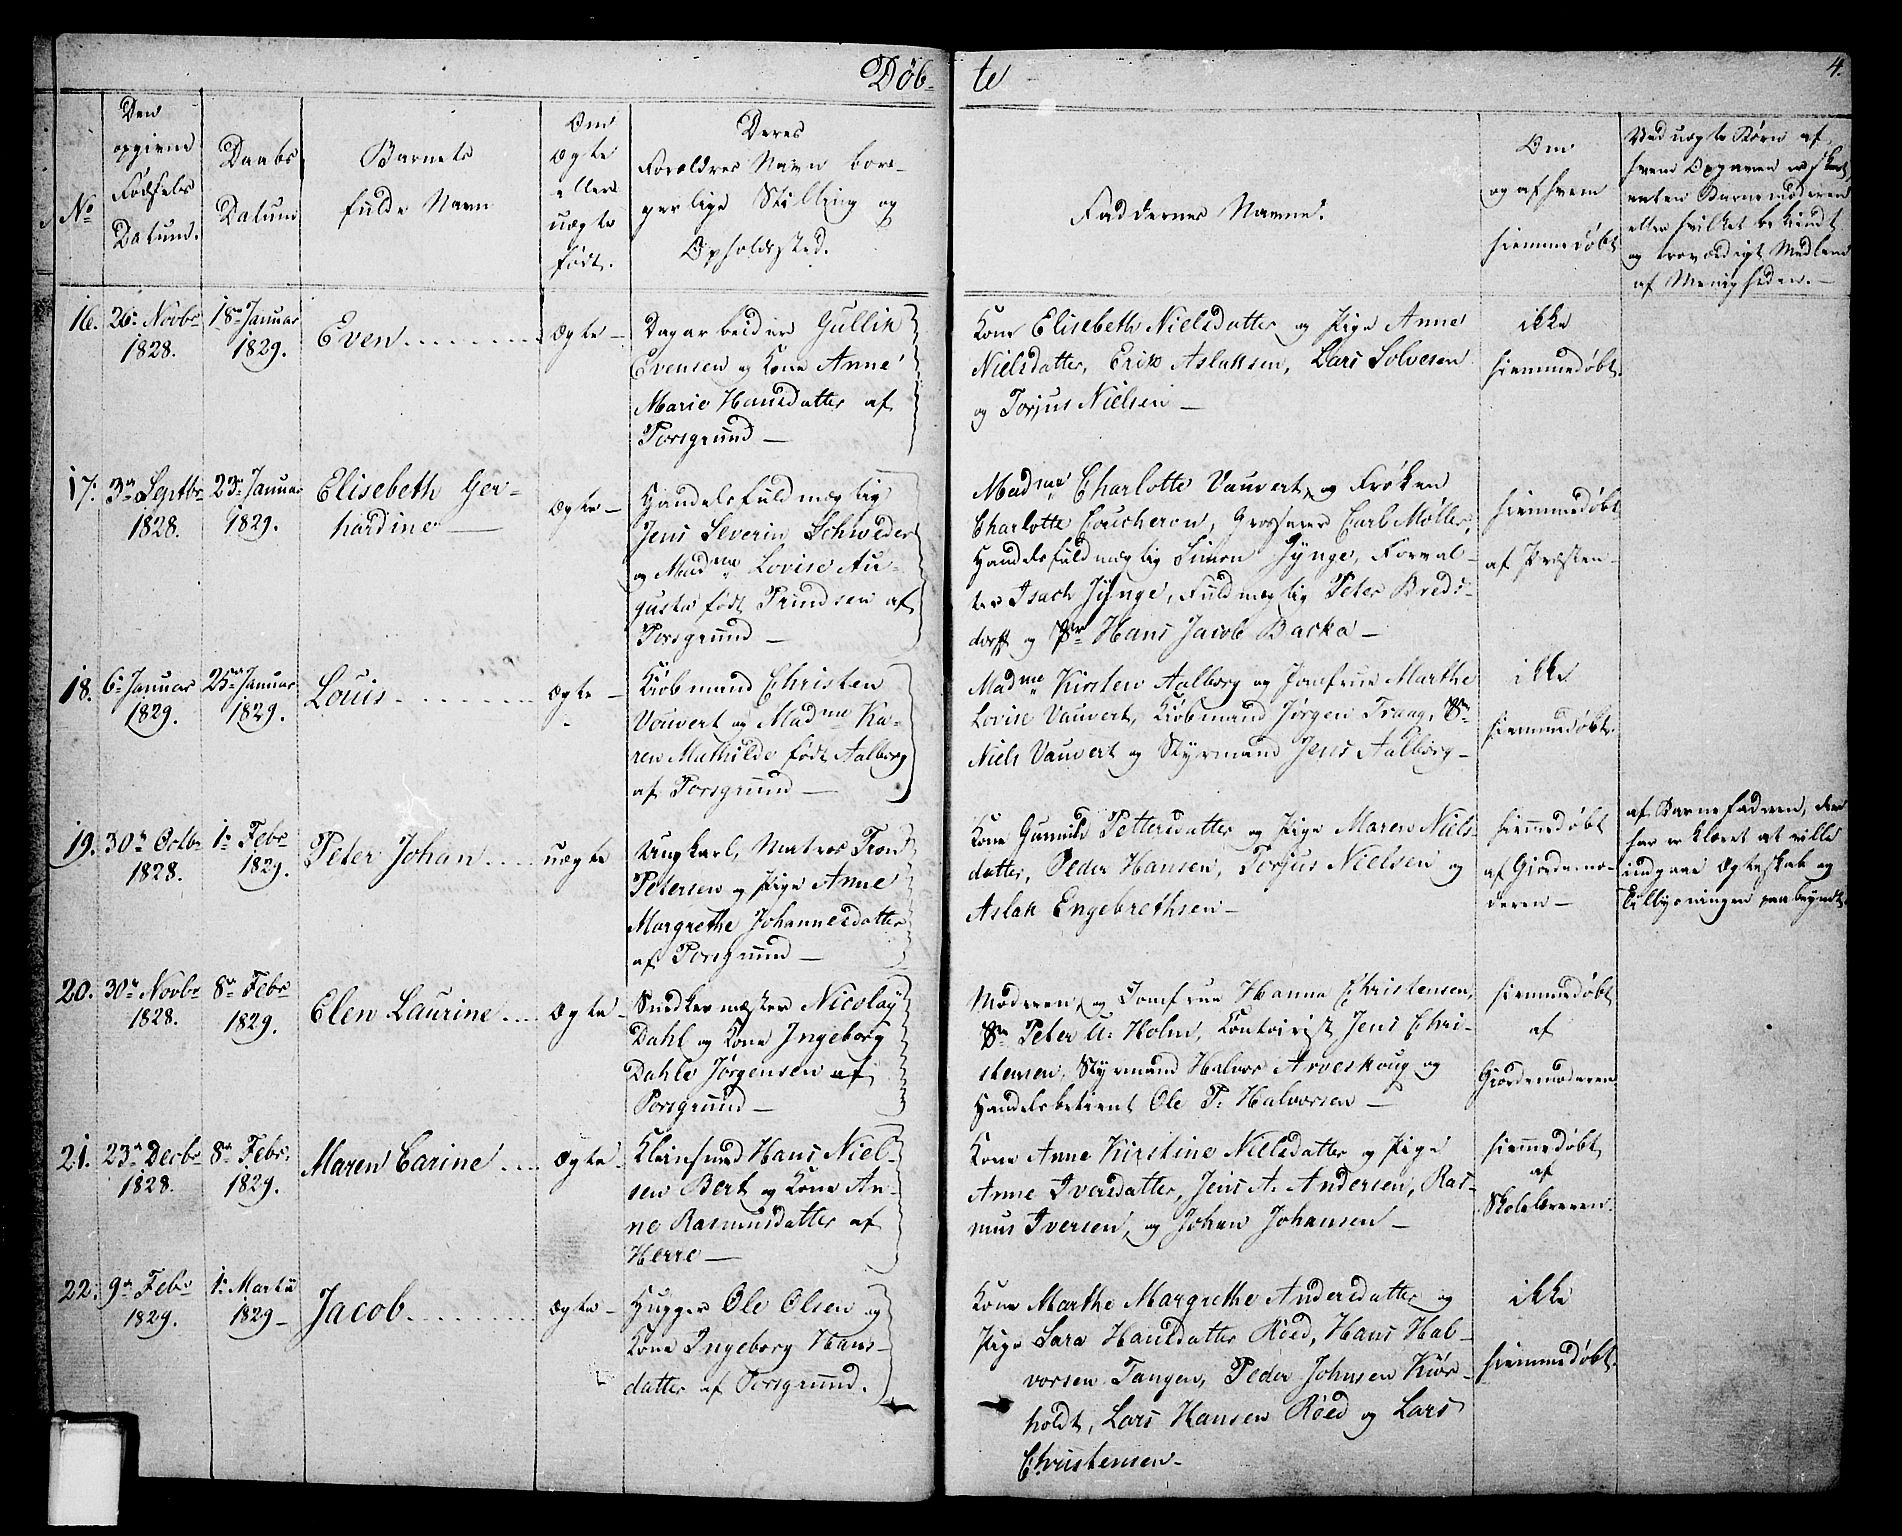 Døb-te
4.
No
Den opgivne Fødsels Datum.
Daabs Datum
Barnets fulde Navn
Om Ægte eller uægte født.
Deres Forældres Navn bor-
gerlige Stilling og
Opholdssted.
Faddernes Navne.
Om og af hvem hiemmedøbt
Ved uægte Børn af
hvem Opgaven er skeet,
enten Barnemoderen
eller hvilket bekiendt
og troværdigt Medlem
af Menigheden.
16. 26: Novbr 1828.
18de Januar 1829.
Even
Ægte
Dagarbeider Gullik
Evensen og Kone Anne
Marie Hansdatter af
Porsgrund
Kone Elisebeth Nielsdatter og Pige Anne
Nielsdatter, Erik Aslaksen, Lars Solvesen
og Torjus Nielsen
ikke
hiemmedøbt.
17. 3die Septbr 1828.
23de Januar 1829.
Elisebeth Ger-
hardine
Ægte
Handelsfuldmægtig
Jens Severin Schweder
og Madme Lovise Au-
gusta født Prindsen af
Porsgrund
Madme Charlotte Vauvert, og Frøken
Charlotte Coucheron, Grosserer Carl Møller,
Handelsfuldmægtig Simon Jynge, Forval-
ter Isach Jynge, Fuldmægtig Peter Breds-
dorff og Sr Hans Jacob Backa
hiemmedøbt
af Præsten
18. 6: Januar 1829.
25de Januar 1829.
Louis
Ægte
Kiøbmand Christen
Vouvert og Madme Ka-
ren Mathilde født Aalborg
af Porsgrund
Madme Kirsten Aalborg og Jomfrue Marthe
Lovise Vauvert, Kiøbmand Jørgen Traag, Sr
Niels Vauvert og Styrmand Jens Aalborg
ikke
hiemmedøbt.
19. 30: Octbr 1828.
1: Febr 1829.
Peter Johan
uægte
Ungkarl, Matros Tron
Petersen og Pige Anne
Margrethe Johannesdatter
af Porsgrund
Kone Gunnild Pettersdatter og Pige Maren Niels-
datter, Peder Hansen, Torjus Nielsen og
Aslak Engebrethsen
hiemedøbt
af Giordemo-
deren
af Barnefaderen, der
har erklæret at ville
indgaae Ægteskab og
Tillysningen paabegyndt.
20. 30: Novbr 1828.
8de Febr 1829.
Elen Laurine
Ægte
Snedkermester Nicolay
Dahl og Kone Ingeborg
Dahle Jørgensen af
Porsgrund
Moderen, og Jomfrue Hanna Christensen,
Sr Peter A: Holm, Kontoirist Jens Chri-
stensen, Styrmand Halvor Arveskoug og
Handelsbetient Ole P: Halvorsen
hiemmedøbt
af
Giordemoderen
21. 23de Decbr 1828.
8de Febr: 1829.
Maren Carine
Ægte
Kleinsmed Hans Niel-
sen Bert og Kone An-
ne Rasmusdatter af
Herre
Kone Anne Kirstine Nielsdatter og Pige
Anne Iversdatter, Jens A. Andersen, Ras-
mus Iversen, og Johan Johansen
hiemmedøbt
af
Skolelæreren.
22. 9de Febr 1829.
1: Martii 1829
Jacob
Ægte
Hugger Ole Olsen og
Kone Ingeborg Hans-
datter af Porsgrund.
Kone Marthe Margrethe Andersdatter og
Pige Sara Hansdatter Røed, Hans Hal-
vorsen Tangen, Peder Johnsen Kiør-
holdt, Lars Hansen Røed og Lars
Christensen
ikke
hiemmedøbt.